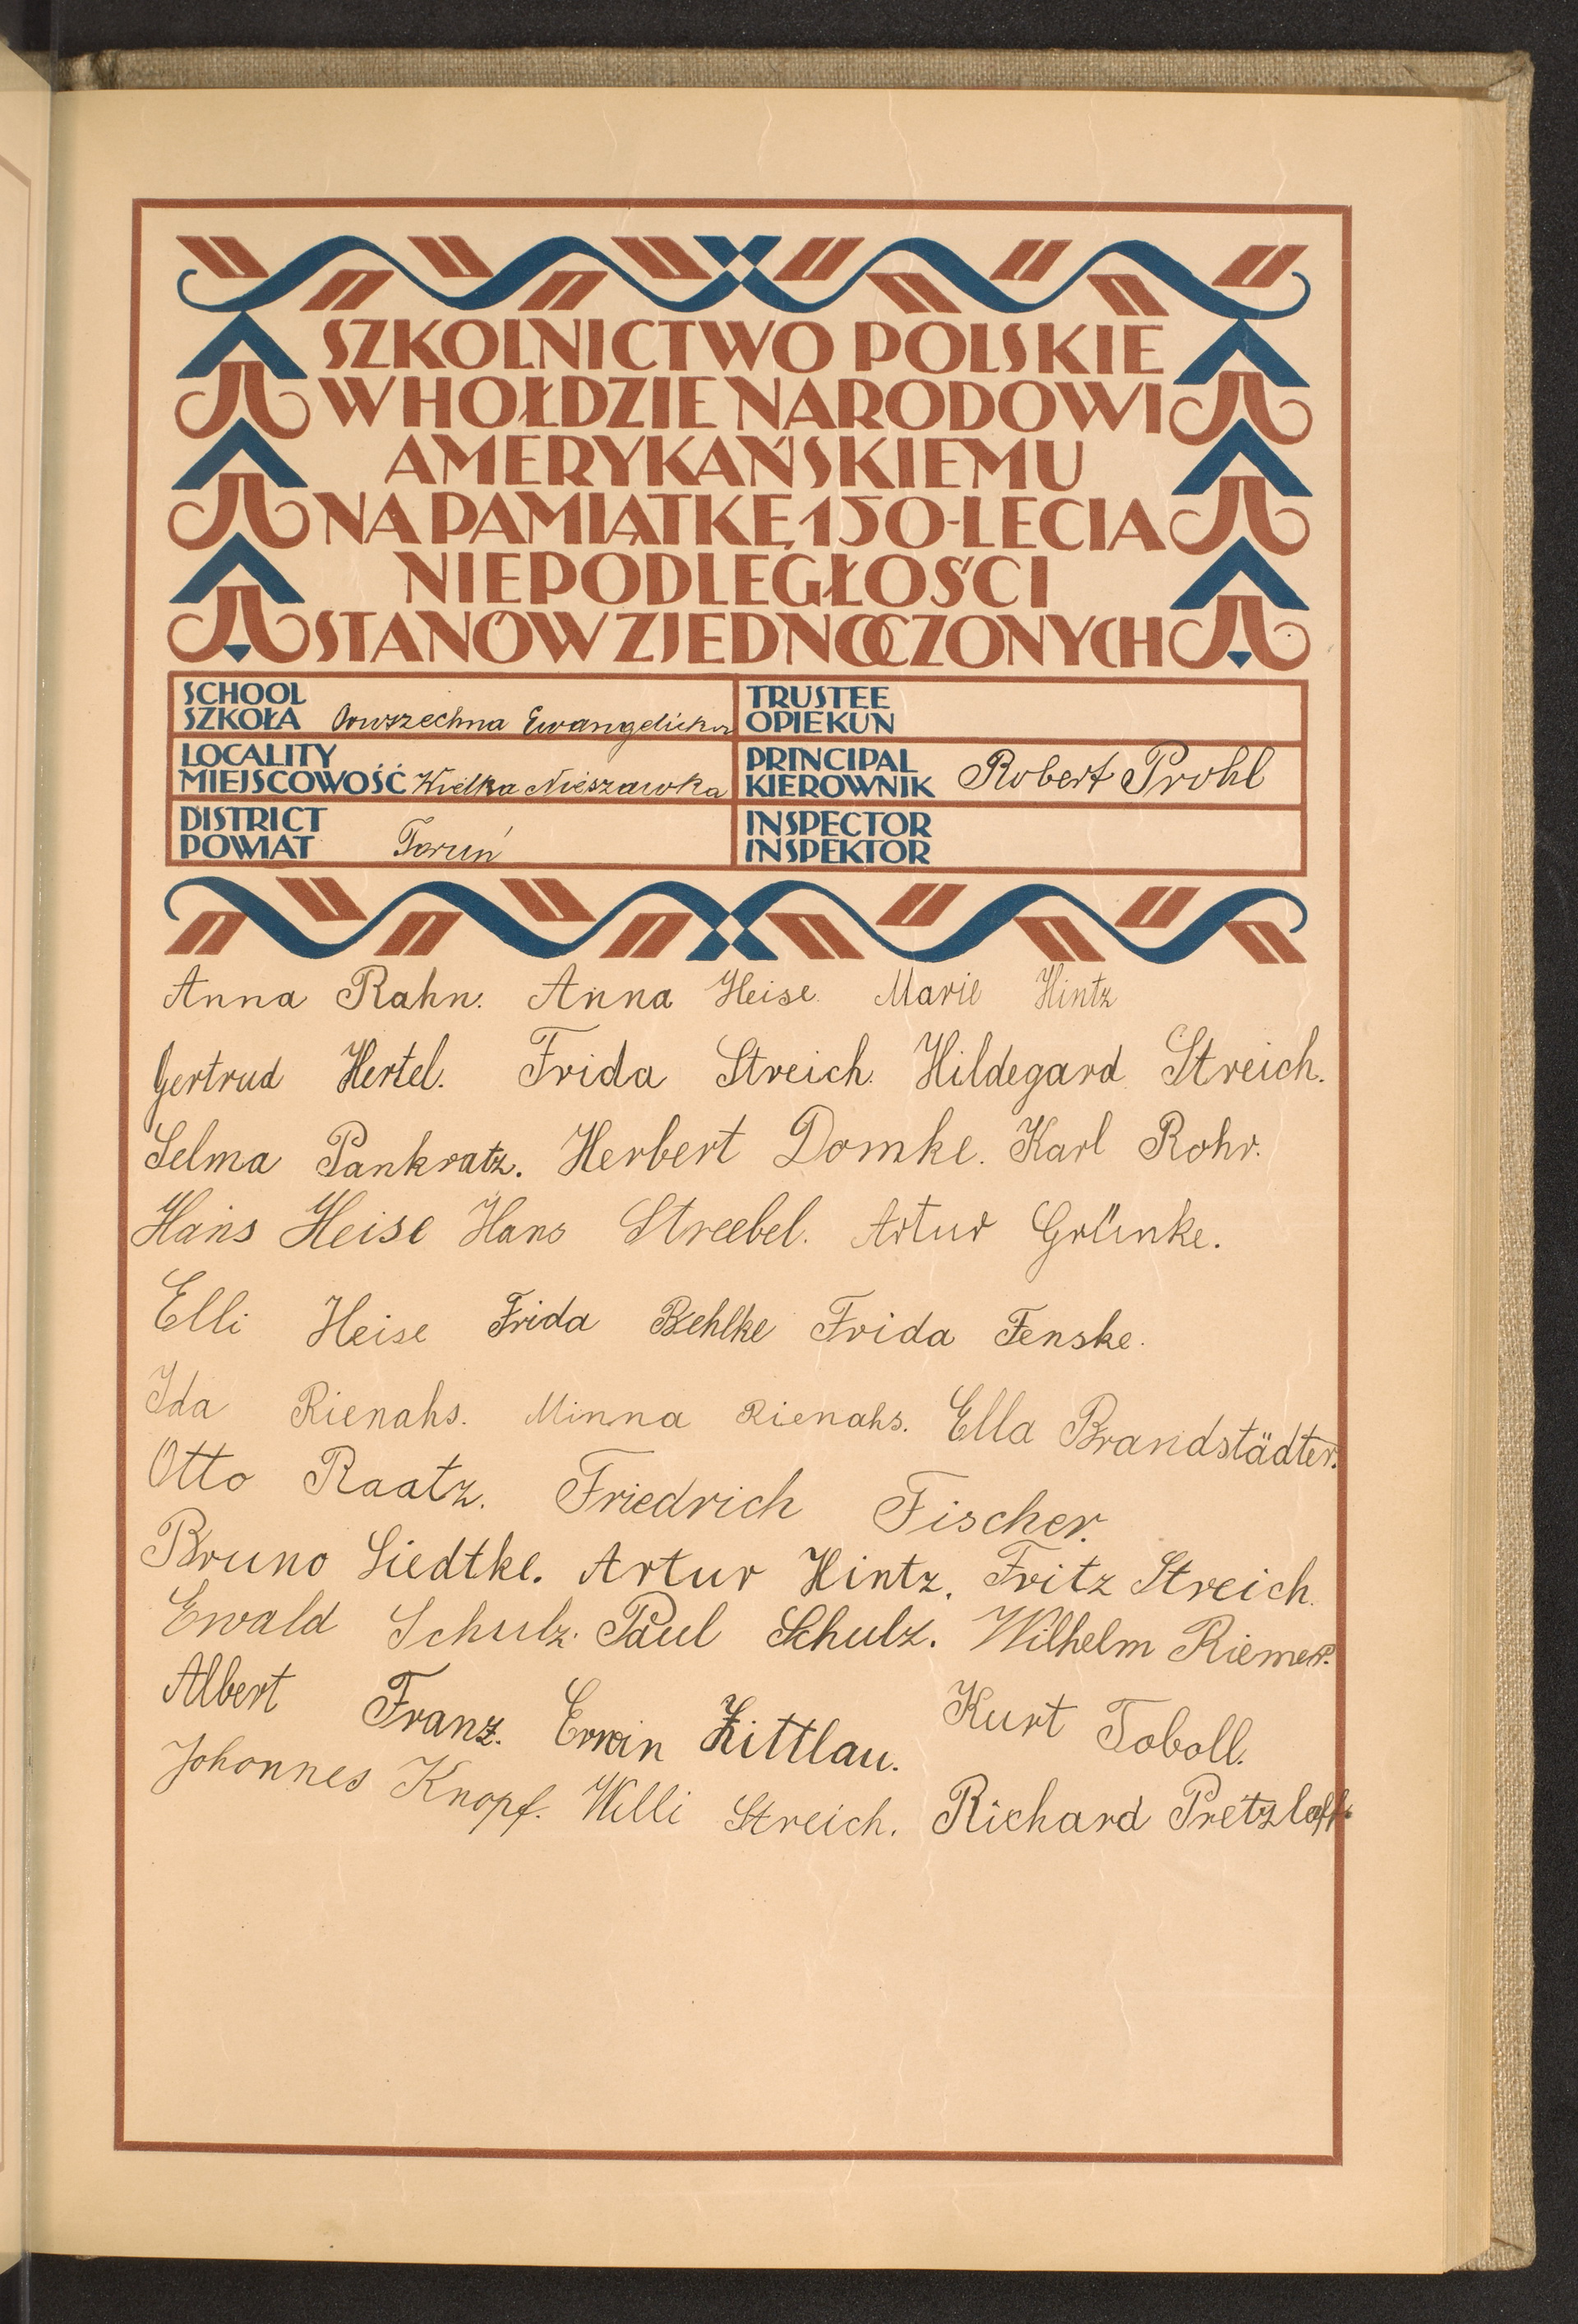 SZKOLNICTWO POLSKIE
W HOŁDZIE NARODOWI
AMERYKAŃSKIEMU
NA PAMIĄTKĘ 150-LECIA
NIEPODLEGŁOŚCI
STANÓW ZJEDNOCZONYCH
SCHOOL
SZKOŁA Powszechna Ewangelicka
TRUSTEE
OPIEKUN
LOCALITY
MIEJSCOWOŚĆ Wielka Nieszawka
PRINCIPAL
KIEROWNIK Robert Prohl
DISTRICT
POWIAT Toruń
INSPECTOR
INSPEKTOR
Anna Rahn. Anna Heise. Marie Hintz
Gertrud Hertel. Frida Streich. Hildegard Streich.
Selma Pankratz. Herbert Domke. Karl Rohr.
Hans Heise Hans Streebel. Artur Grünke.
Elli Heise Frida Behlke Frida Fenske.
Ida Rienahs. Minna Rienahs. Ella Brandstädter.
Otto Raatz. Friedrich Fischer.
Bruno Liedtke. Artur Hintz. Fritz Streich.
Ewald Schulz. Paul Schulz. Wilhelm Riemer.
Albert Franz. Erwin Zittlau. Kurt Toboll.
Johannes Knopf. Willi Streich. Richard Pretzlaff.